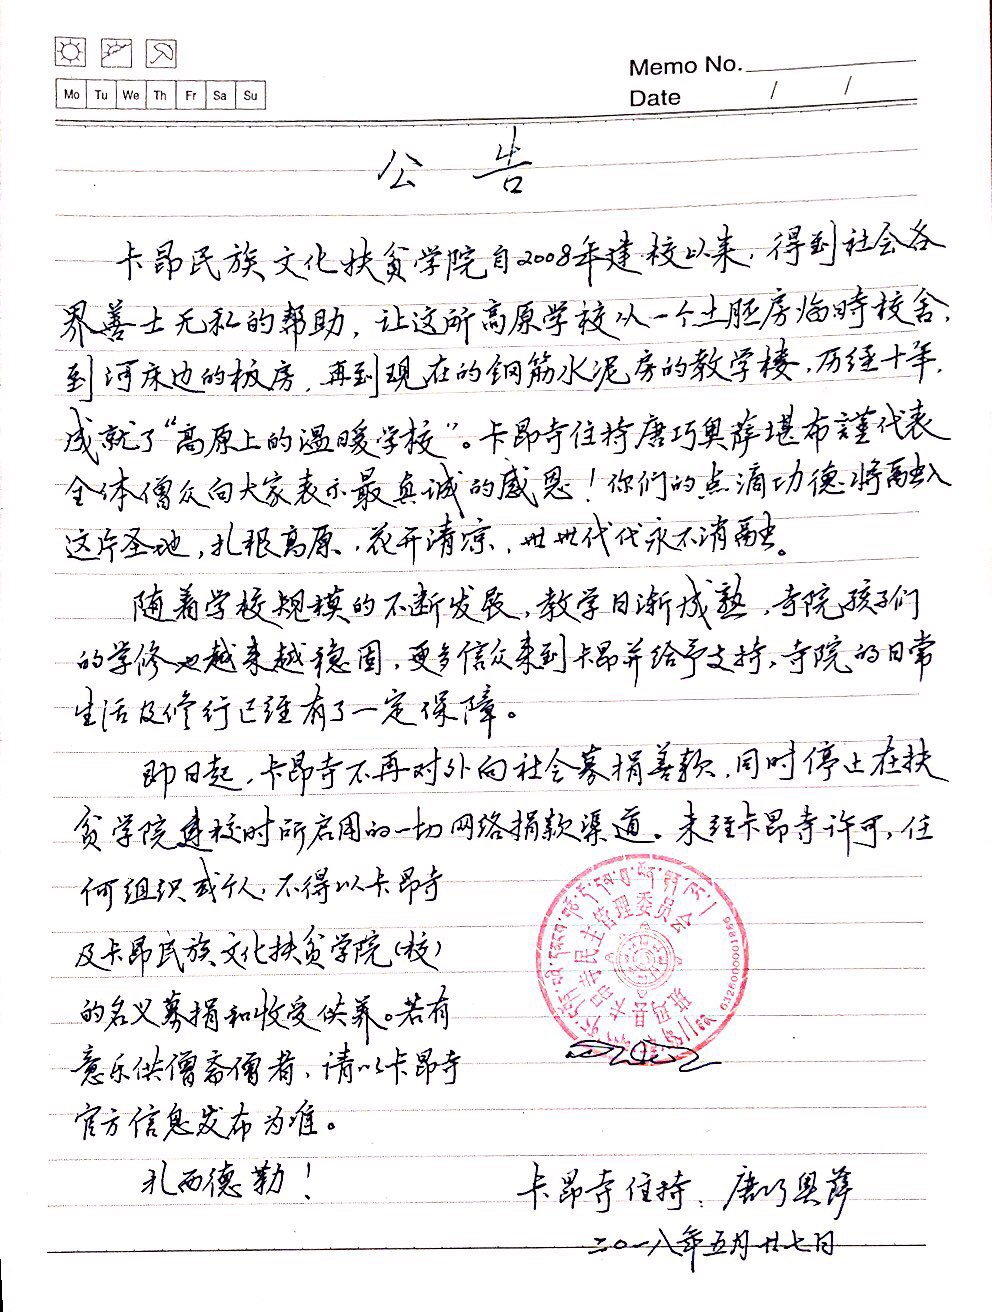 Mo Tu We Th Fr Sa Su
Memo No.
Date / /
公 告
卡昂民族文化扶贫学院自2008年建校以来，得到社会各
界善士无私的帮助，让这所高原学校从一个土胚房临時校舍，
到河床边的板房，再到现在的钢筋水泥房的教学楼，历经十年，
成就了“高原上的温暖学校”。卡昂寺住持唐巧奥萨堪布謹代表
全体僧众向大家表示最真诚的感恩！你们的点滴功德将融入
这片圣地，扎根高原，花开清凉，世世代代永不消融。
随着学校规模的不断发展，教学日渐成熟，寺院孩子们
的学修也越来越稳固，更多信众来到卡昂并给予支持，寺院的日常
生活及修行已经有了一定保障。
即日起，卡昂寺不再对外向社会募捐善款，同时停止在扶
贫学院建校时所启用的一切网络捐款渠道。未经卡昂寺许可，任
何组织或个人，不得以卡昂寺
及卡昂民族文化扶贫学院（校）
的名义募捐和收受供养。若有
意乐供僧斋僧者，请以卡昂寺
官方信息发布为准。
扎西德勒！
班玛县卡昂寺民主管理委员会
卡昂寺住持：唐巧奥萨
二〇一八年五月廿七日